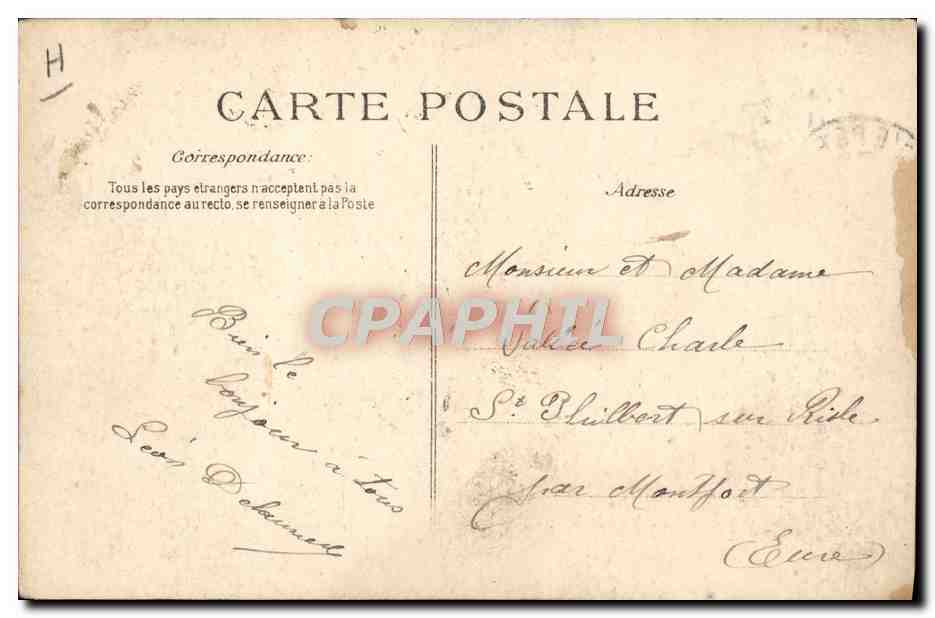 H
CARTE POSTALE
Correspondance:
Tous les pays etrangers n'acceptent pas la
correspondance au recto, se renseigner à la Poste
Bien le
bonjour à tous
Léon
Adresse
Monsieur et Madame
Charle
St Philbert sur Risle
par Montfort
(Eure)
CPAPHIL